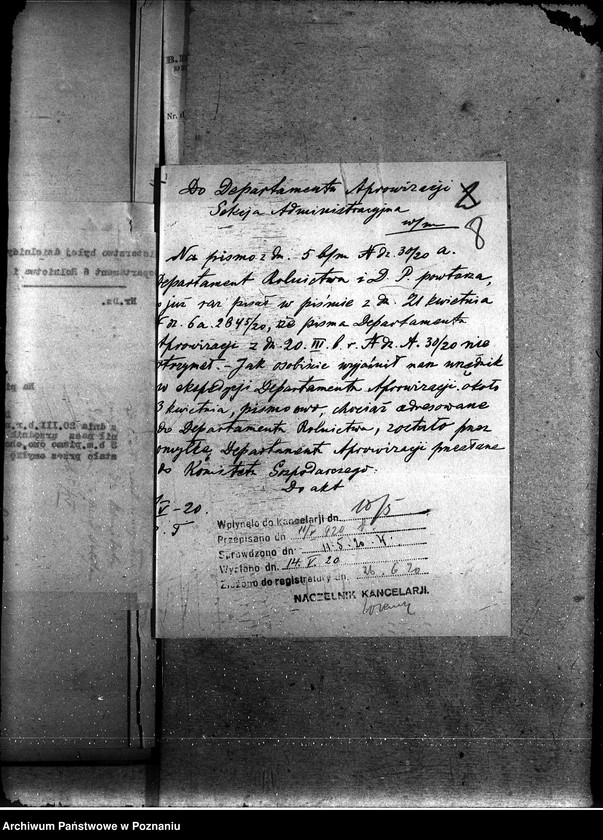 Do Departamentu Aprowizacji
Sekcja Administracyjna
w/m
8
8
Na pismo z dn. 5 b/m A dz. 30/20 a.
Departament Rolnictwa i D. P. powtarza,
już raz pisał w piśmie z dn. 21 kwietnia
6 a. 2845/20, że pisma Departamentu
Aprowizacji z dn. 20. III. b. r. A dz. A. 30/20 nie
otrzymał. - Jak osobiście wyjaśnił nam urzędnik
w ekspedycji Departamentu Aprowizacji, około
3 kwietnia, pismo owo, chociaż adresowane
do Departamentu Rolnictwa, zostało przez
omyłkę Departament Aprowizacji przesłane
do Komitetu Gospodarczego.
Do akt
V - 20.
Wpłynęło do kancelarji dn. 10/5
Przepisano dn. 11/V 920
Sprawdzono dn. 11.5.20.
Wysłano dn. 14. V. 20
Złożono do registratury dn. 26.6.20
NACZELNIK KANCELARJI.
B.
Nr. d
Nr.Dz.
z dnia 20.III.b.r.
Archiwum Państwowe w Poznaniu